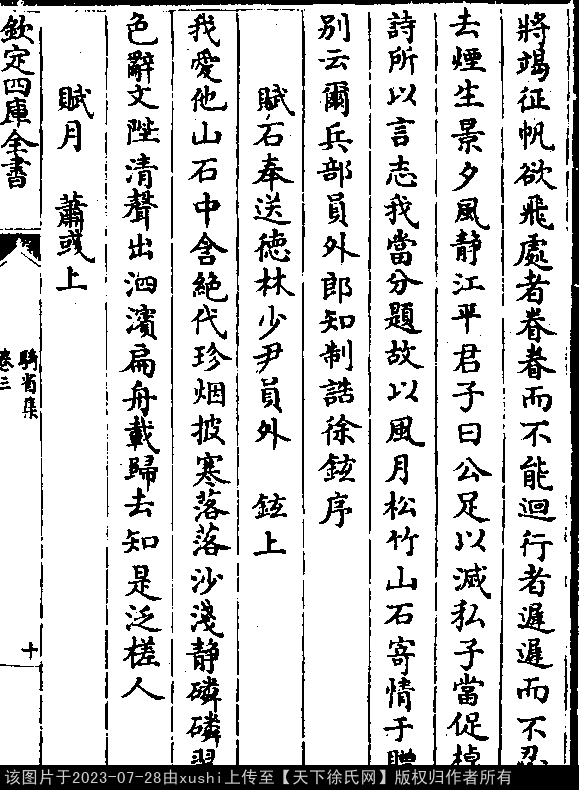 將竭征帆欲飛處者眷眷而不能迴行者遲遲而不忍
去煙生景夕風静江平君子曰公足以滅私子當促棹
詩所以言志我當分題故以風月松竹山石寄情于贈
别云爾兵部員外郎知制誥徐鉉序
賦石奉送徳林少尹員外 鉉上
我愛他山石中含絶代珍烟披寒落落沙淺静磷磷翠
色辭文陛清聲出泗濱扁舟載歸去知是泛槎人
賦月 蕭彧上
欽定四庫全書
騎省集
卷三
十
该图片于2023-07-28由xushi上传至【天下徐氏网】版权归作者所有